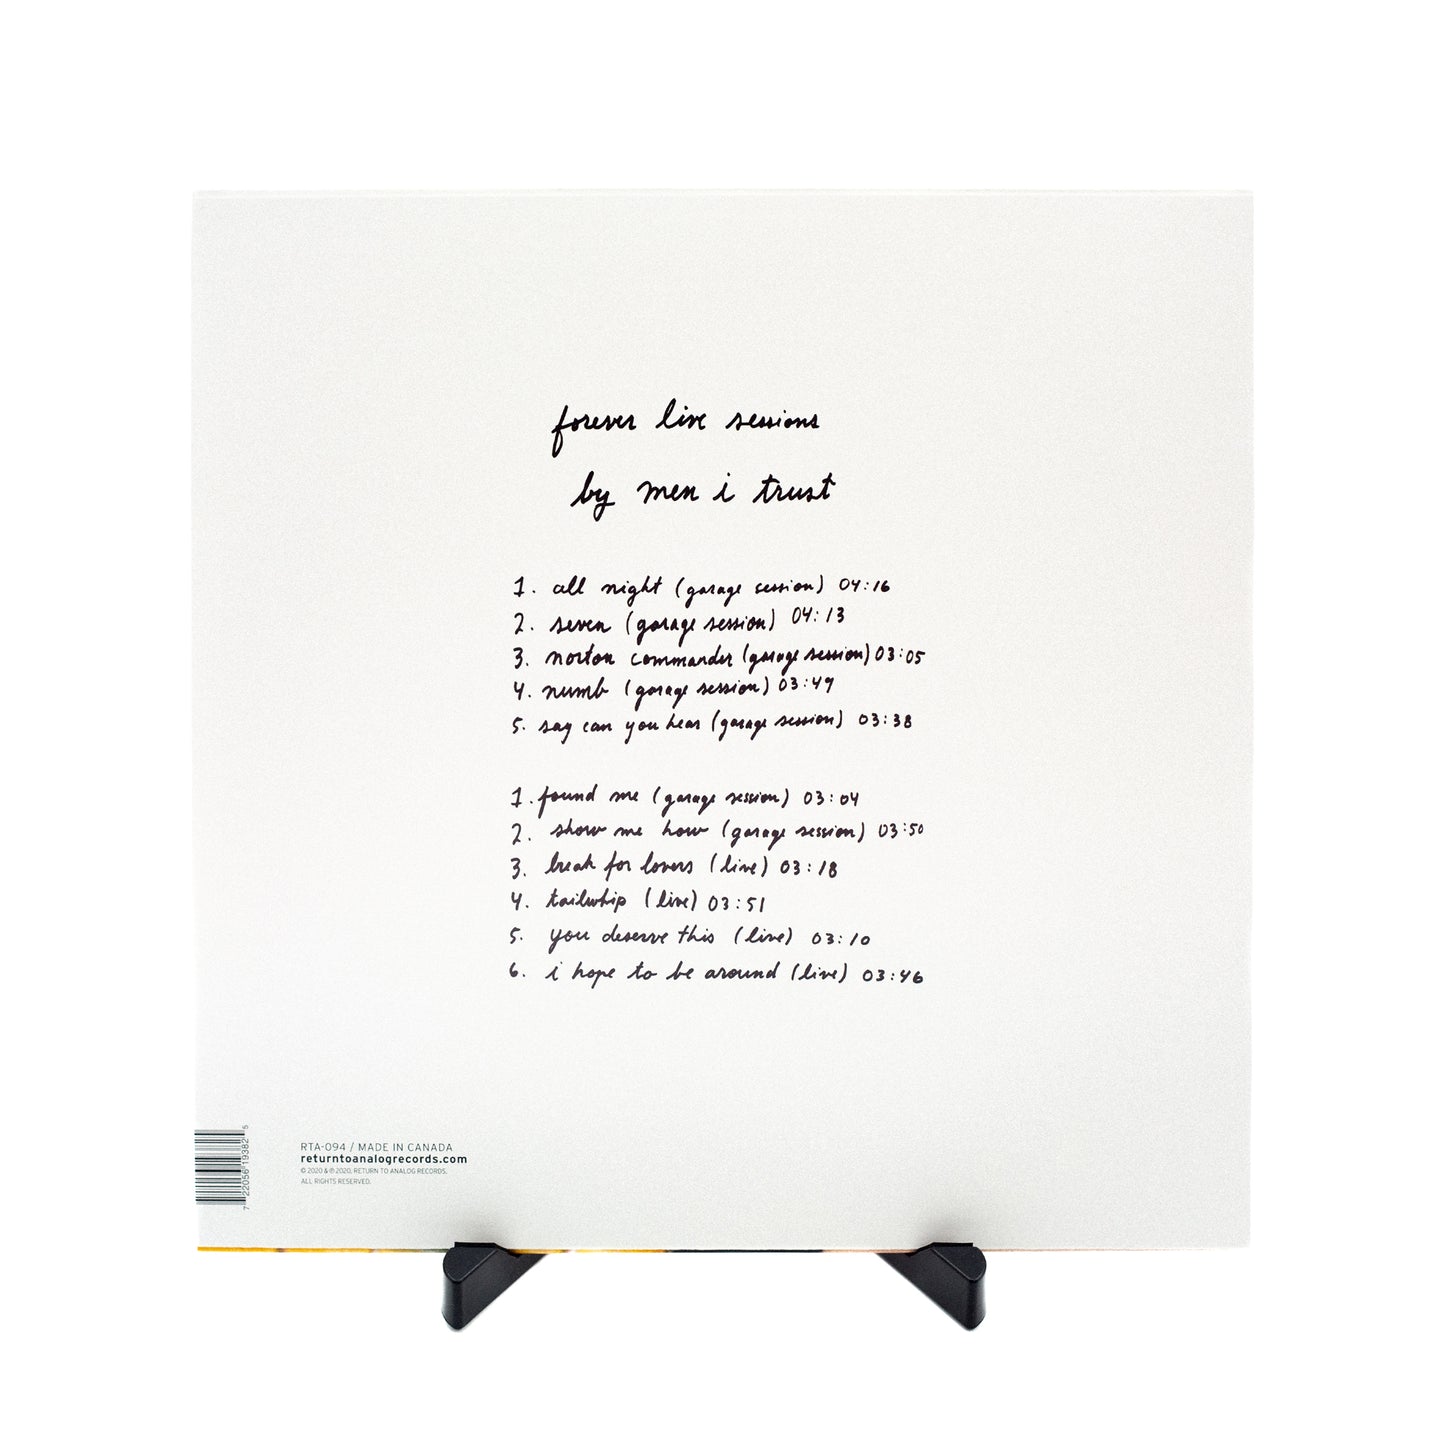 forever live sessions
by men i trust
1. all night (garage session) 04:16
2. seven (garage session) 04:13
3. norton commander (garage session) 03:05
4. numb (garage session) 03:49
5. say can you hear (garage session) 03:38
1. found me (garage session) 03:04
2. show me how (garage session) 03:50
3. break for lovers (live) 03:18
4. tailwhip (live) 03:51
5. you deserve this (live) 03:10
6. i hope to be around (live) 03:46
7 22056 19382 5
RTA-094 / MADE IN CANADA
returntoanalogrecords.com
© 2020 & ℗ 2020, RETURN TO ANALOG RECORDS.
ALL RIGHTS RESERVED.